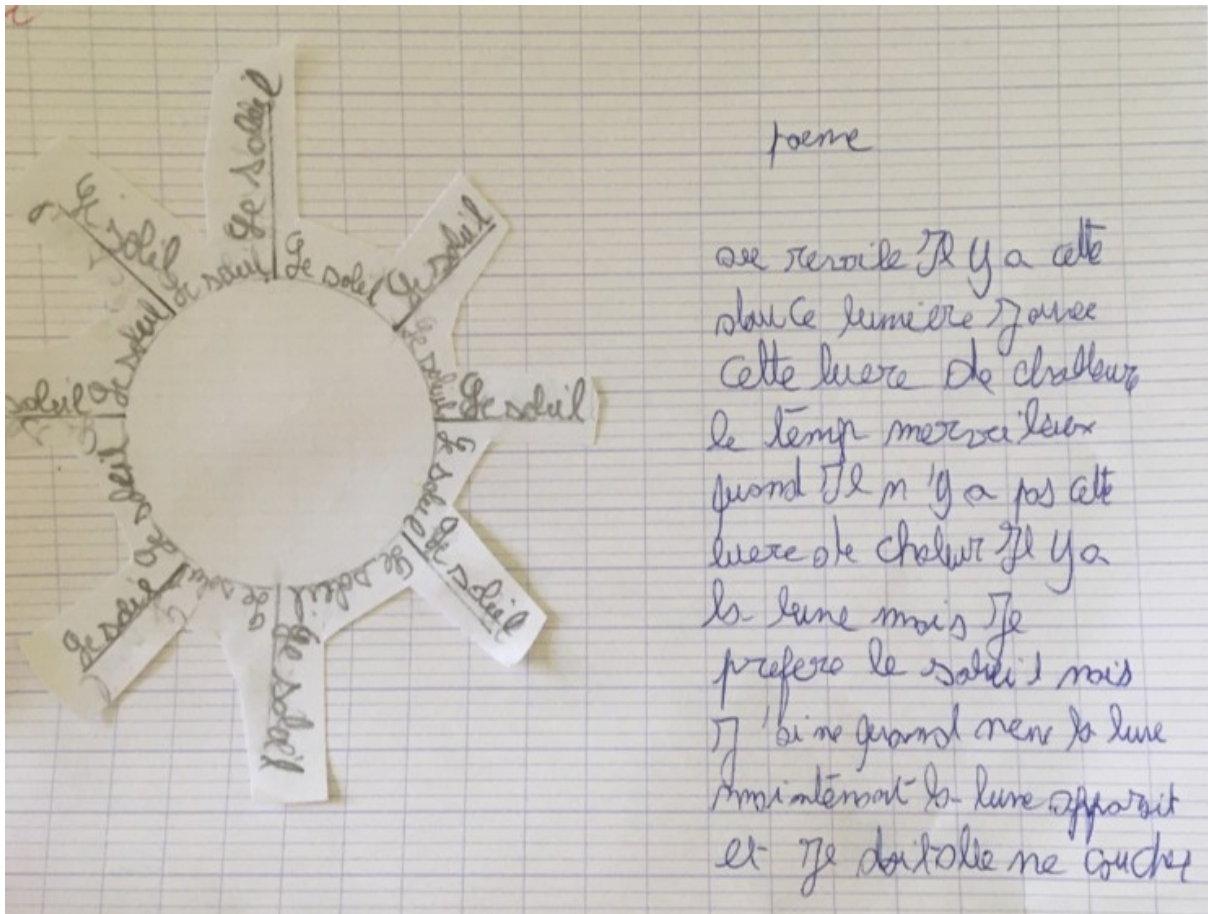 Le soleil
Le soleil
Le soleil
Le soleil
Le soleil
Le soleil
Le soleil
Le soleil
Le soleil
Le soleil
Le soleil
Le soleil
Le soleil
Le soleil
soleil
Le soleil
poeme
Il y a cette
douce lumière
cette luere de challeur
le temp merveileux
quand Il n'y a pas cette
luere de chaleur Il y a
la lune mais Je
prefere le soleil mais
J'aime quand meme la lune
maintenant la lune apparait
et Je doit me coucher